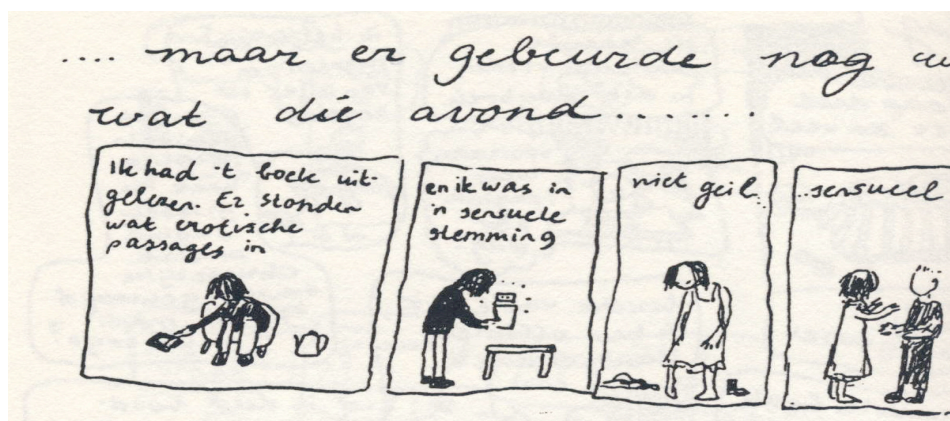 .... maar er gebeurde nog
wat die avond.......
Ik had 't boek uit-
gelezen. Er stonden
wat erotische
passages in
en ik was in
'n sensuele
stemming
niet geil..
..sensueel